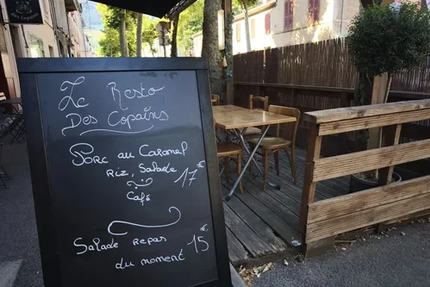 Le Resto
Des Copains
Porc au Caramel
Riz, Salade 17€
Café
Salade repas 15€
du moment